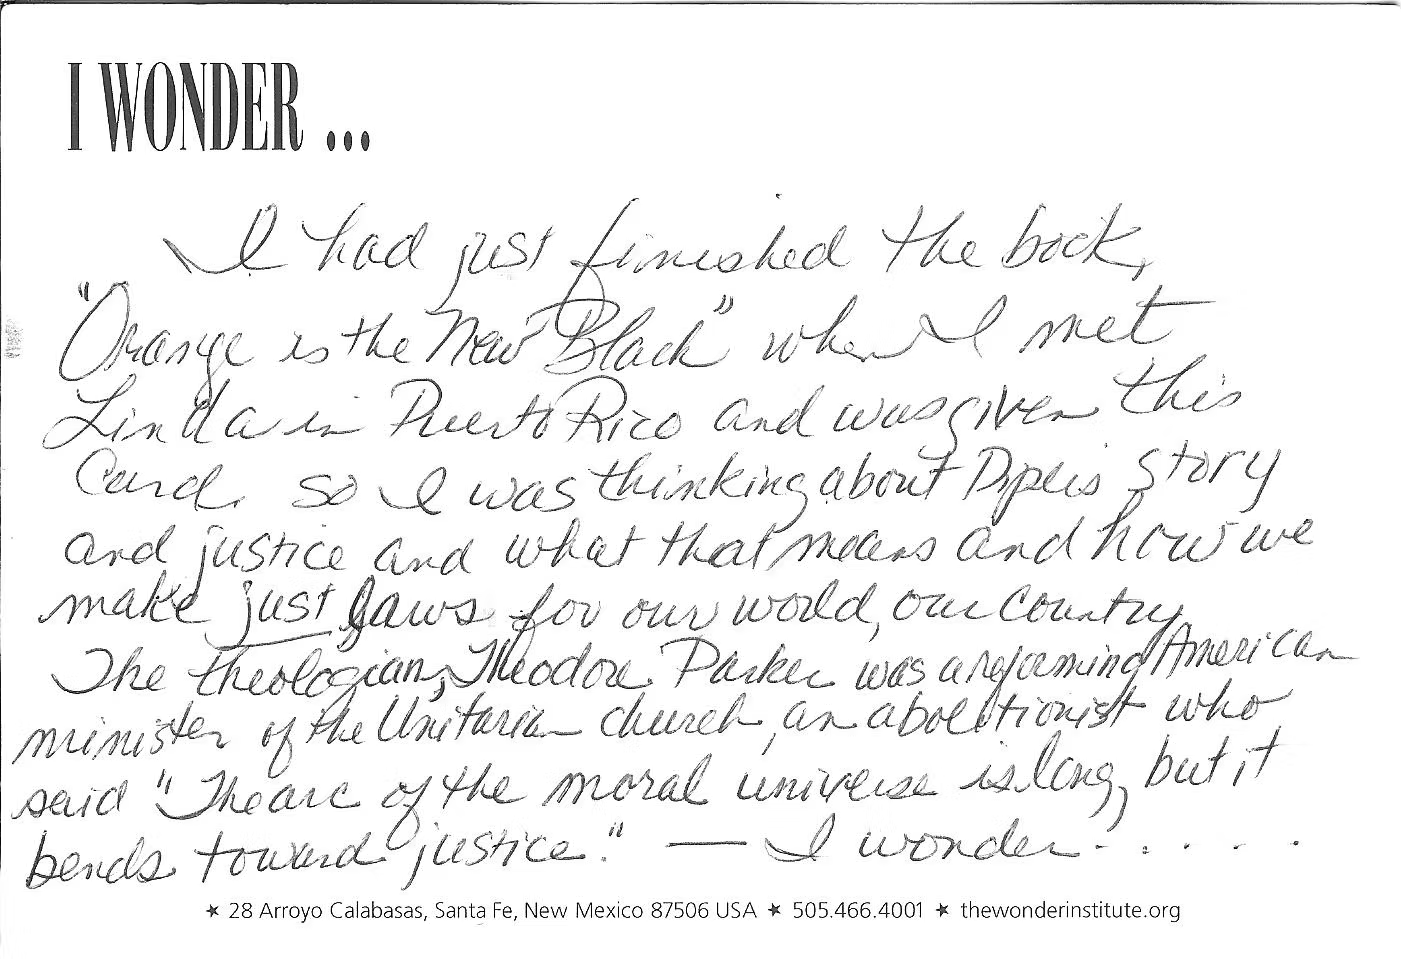 I WONDER ...
I had just finished the book,
"Orange is the New Black" when I met
Linda in Puerto Rico and was given this
Card. So I was thinking about Piper's story
and justice and what that means and how we
make just laws for our world, our country.
The theologian, Theodore Parker was a reforming American
minister of the Unitarian church, an abolitionist who
said "The arc of the moral universe is long, but it
bends toward justice." — I wonder......
★ 28 Arroyo Calabasas, Santa Fe, New Mexico 87506 USA ★ 505.466.4001 ★ thewonderinstitute.org